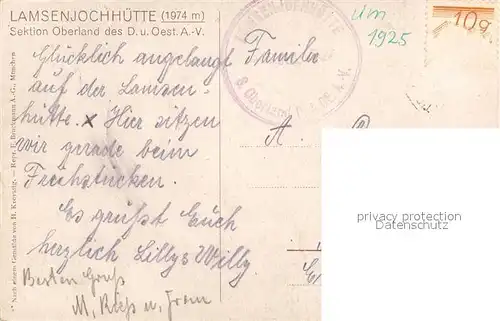 LAMSENJOCHHÜTTE (1974 m)
Sektion Oberland des D. u. Oest. A.-V.
Um
1925
10g
Glücklich angelangt Familie
auf der Lamsen-
hütte. x Hier sitzen
wir gerade beim
Frühstücken.
Es grüßt Euch
herzlich Lilly & Willy.
Besten Gruß
M. Rieß u. Frau
A.
privacy protection
Reg.
* Nach einem Gemälde von H. Kversting. – Repr. F. Bruckmann A.-G., München